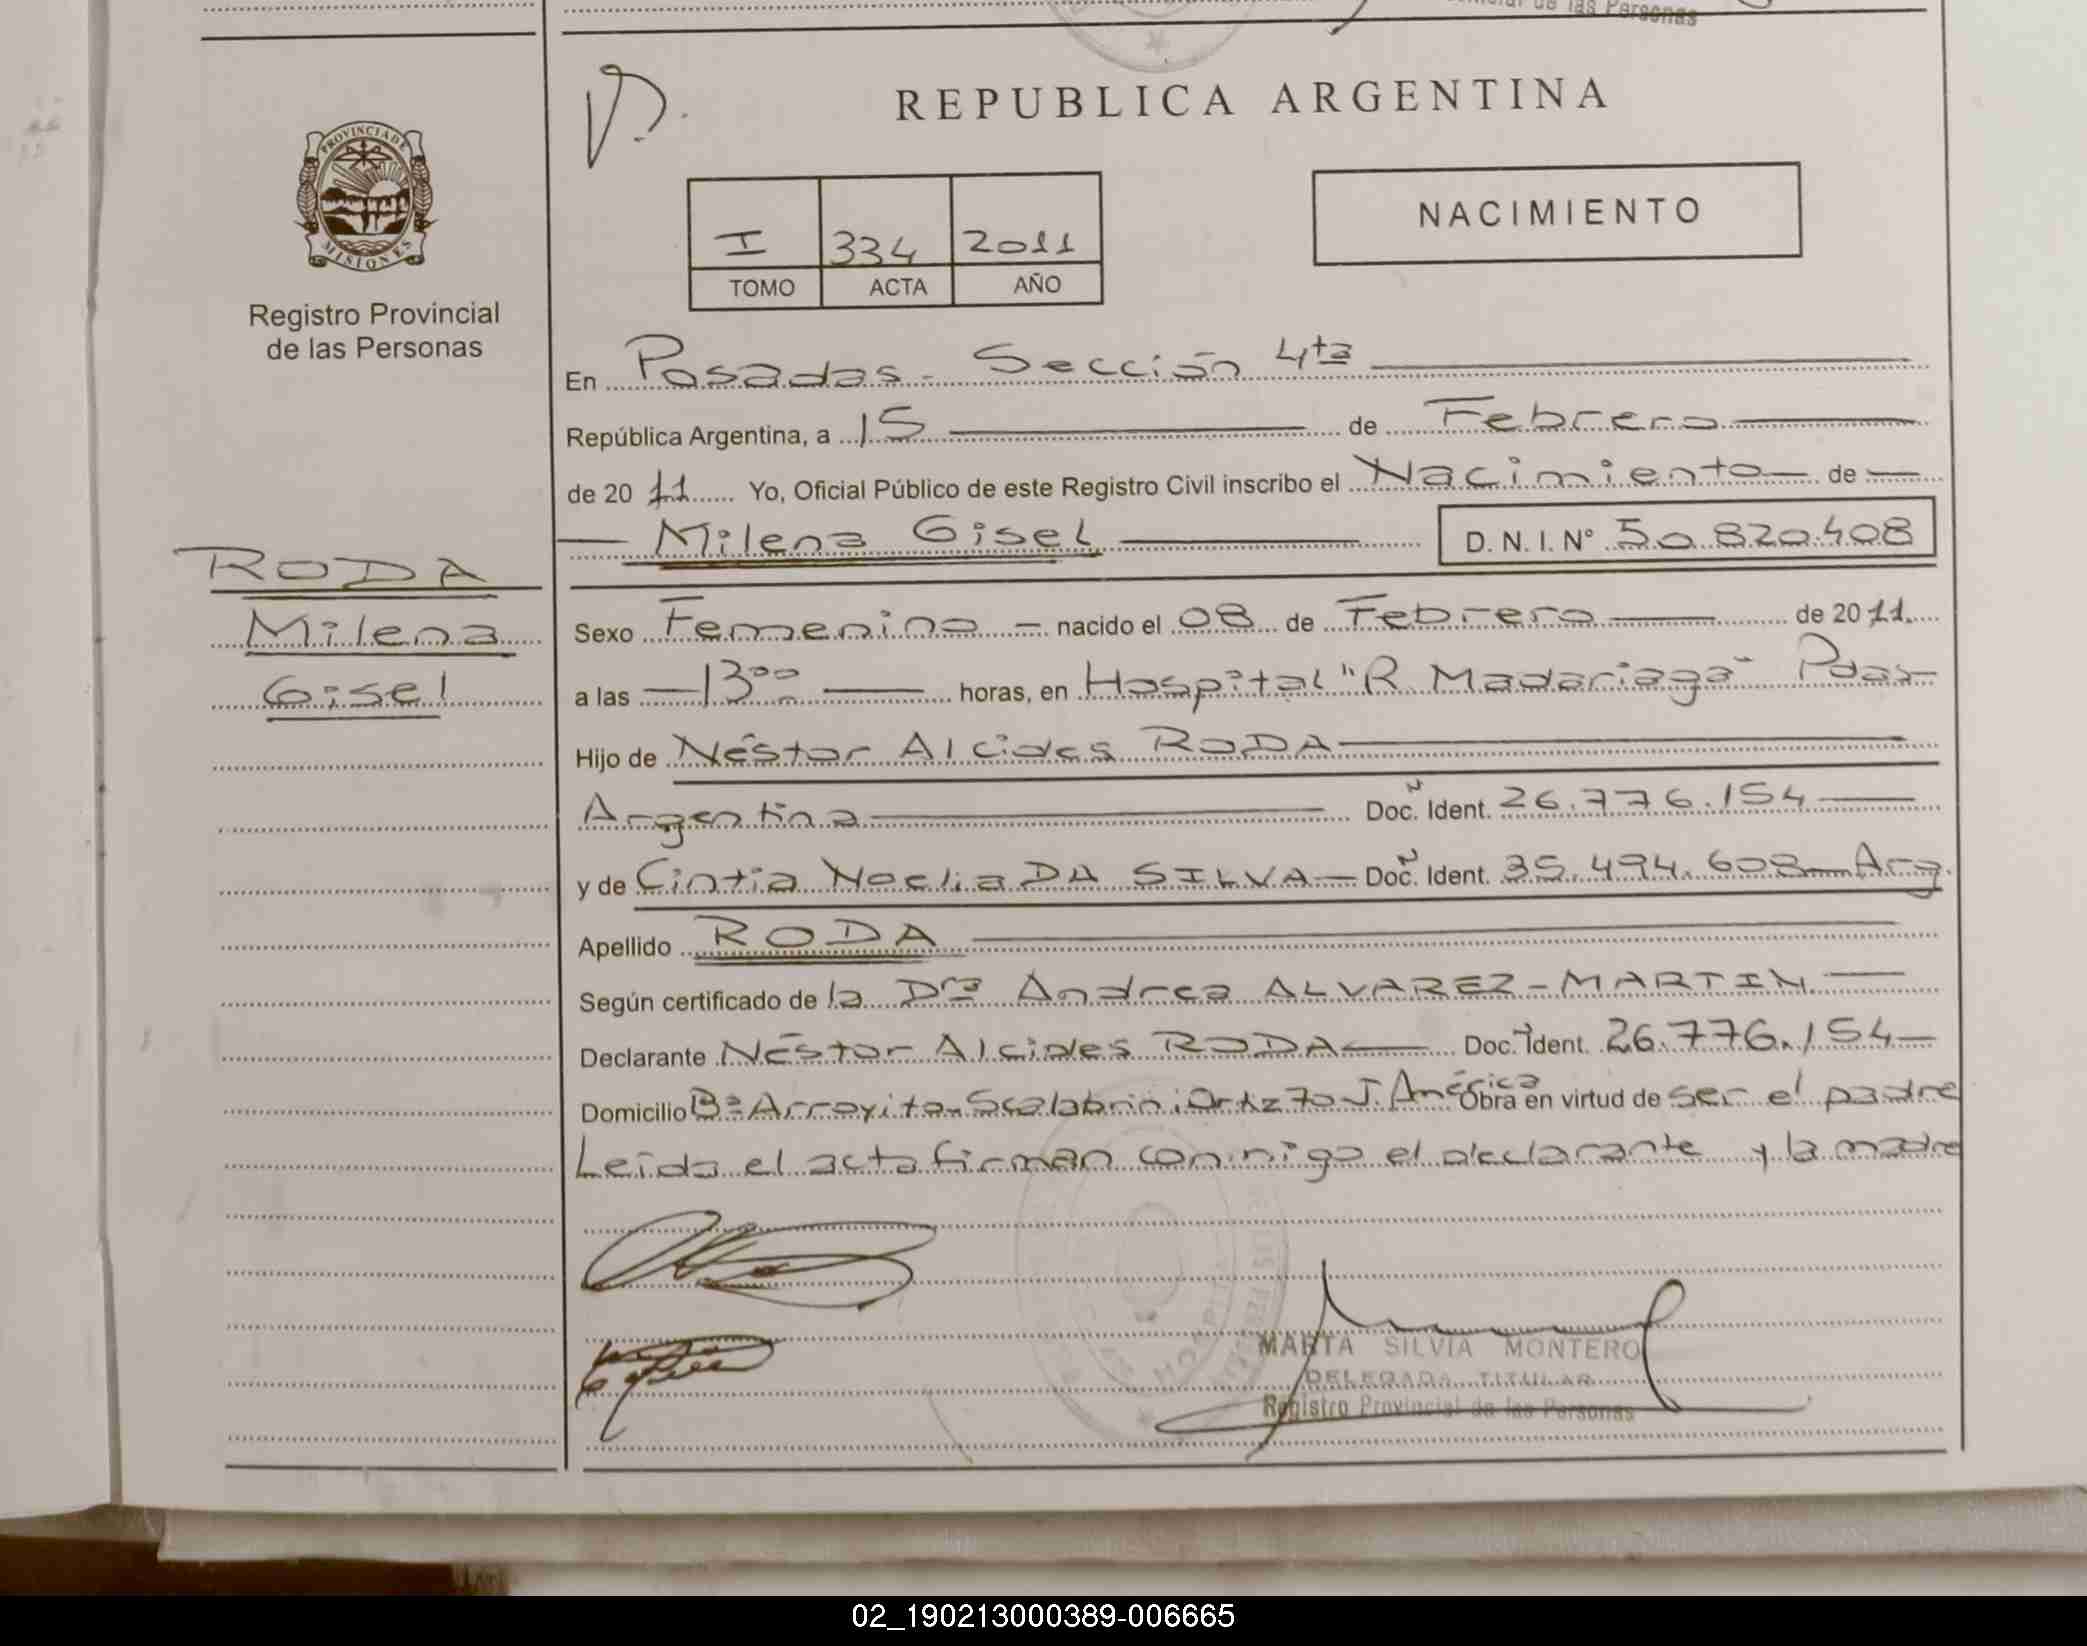 de las Personas
REPUBLICA ARGENTINA
PROVINCIA DE
MISIONES
Registro Provincial
de las Personas
I 334 2011
TOMO ACTA AÑO
NACIMIENTO
En Posadas - Sección 4ta
República Argentina, a 15 de Febrero
de 20 11 Yo, Oficial Público de este Registro Civil inscribo el Nacimiento de
Milena Gisel D. N. I. Nº 50.820.408
RODA
Milena
Gisel
Sexo Femenino - nacido el 08 de Febrero de 2011.
a las 13°° horas, en Hospital "R. Madariaga" Pdas
Hijo de Néstor Alcides RODA
Argentina Doc. N Ident. 26.776.154
y de Cintia Noelia DA SILVA Doc. N Ident. 35.494.608 Arg.
Apellido RODA
Según certificado de la Dra Andrea ALVAREZ-MARTIN
Declarante Néstor Alcides RODA Doc. N Ident. 26.776.154
Domicilio Bº Arroyito Scalabrini Ortiz 70 J. América Obra en virtud de ser el padre
Leida el acta firman conmigo el declarante y la madre
MARTA SILVIA MONTERO
DELEGADA TITULAR
Registro Provincial de las Personas
02_190213000389-006665